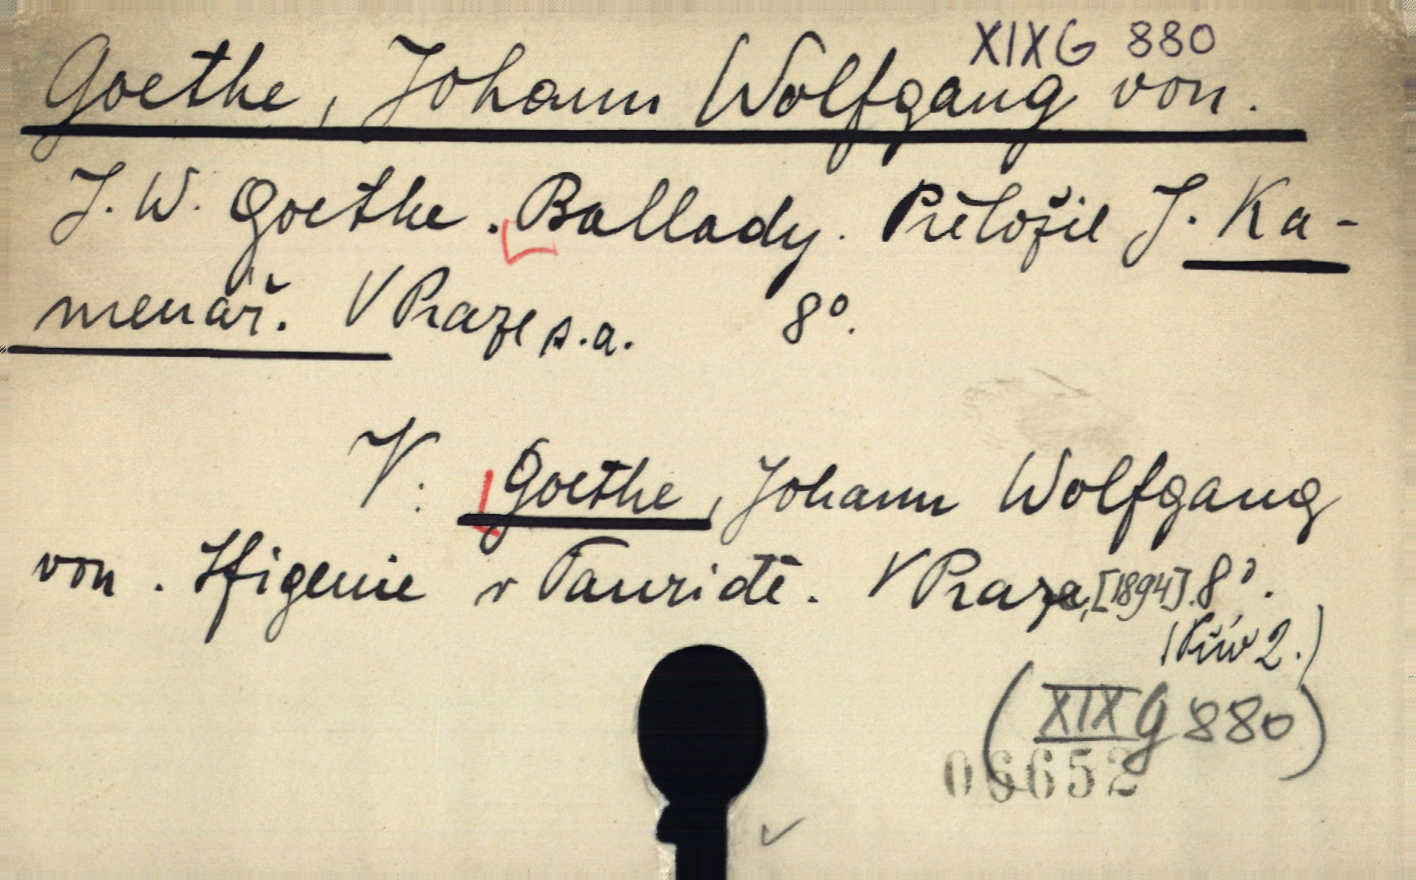 XIXG 880
Goethe, Johann Wolfgang von.
J. W. Goethe. Ballady. Přeložil J. Ka-
menář. V Praze s.a. 8°.
V: Goethe, Johann Wolfgang
von. Ifigenie v Tauridě. V Praze, [1894]. 8°.
(Přív 2.)
(XIX G 880)
06652